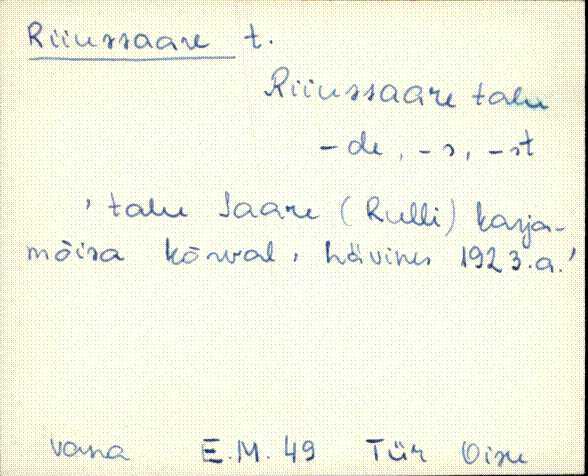 Riiussaare t.
Riiussaare talu
-de, -s, -st
'talu Saare (Rulli) karja-
mõisa kõrval, hävines 1923.a.'
vana E.M. 49 Tür Oisu